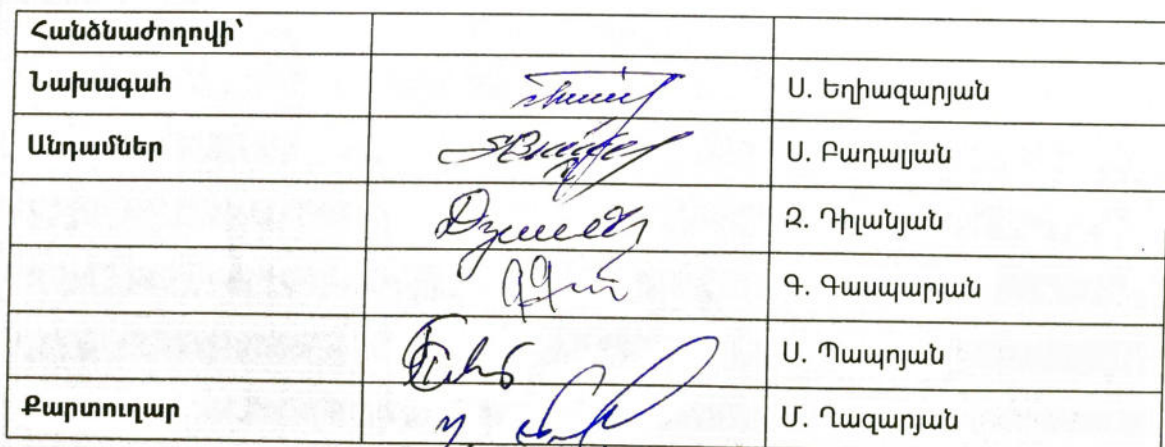 Հանձնաժողովի՝
Նախագահ Ս. Եղիազարյան
Անդամներ Ս. Բադալյան
Զ. Դիլանյան
Գ. Գասպարյան
Ս. Պապոյան
Քարտուղար Մ. Ղազարյան